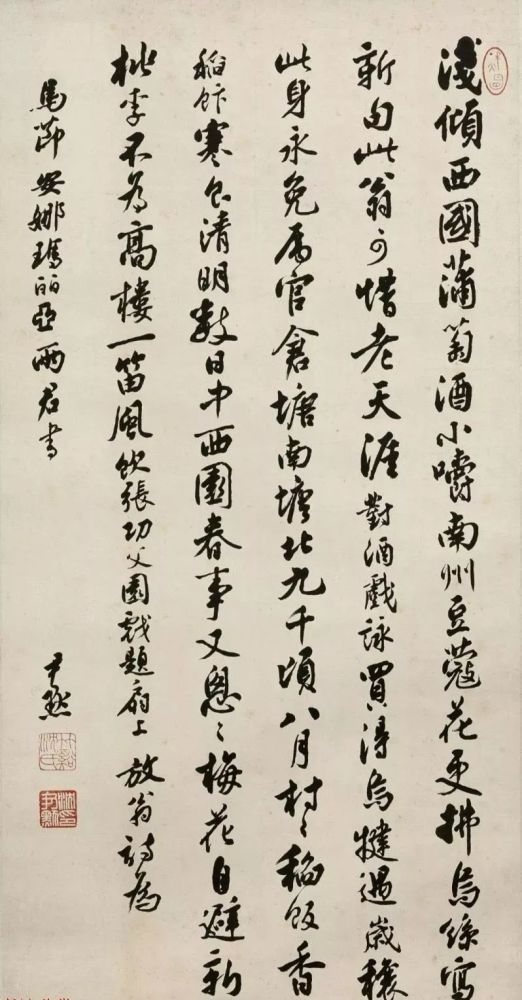 淺傾西國蒲萄酒小嚼南州豆蔻花更拂烏絲寫
新句此翁可惜老天涯對酒戲詠買得烏犍遇歲穰
此身永免屬官倉塘南塘北九千頃八月村〻稻飯香
稻飯寒食清明數日中西園春事又怱〻梅花自避新
桃李不為高樓一笛風飲張功父園戲題扇上放翁詩為
馬節安娜瑪丽亞兩君書
尹默
竹谿沈氏
沈尹默印